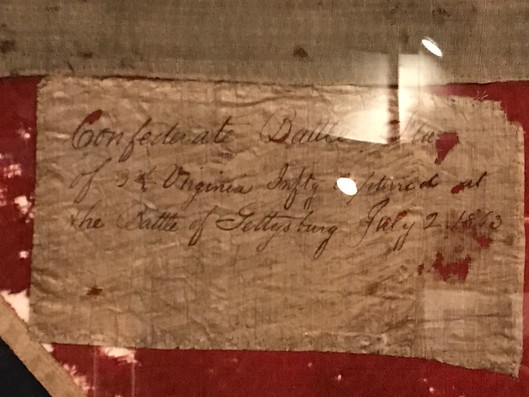 Confederate Battle
of 3d Virginia Infty captured at
the Battle of Gettysburg July 2 1863